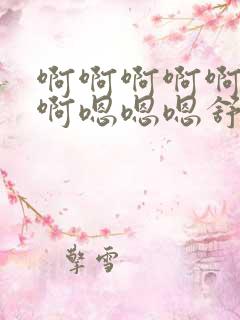 啊啊啊啊啊
啊嗯嗯嗯舒
擎雪